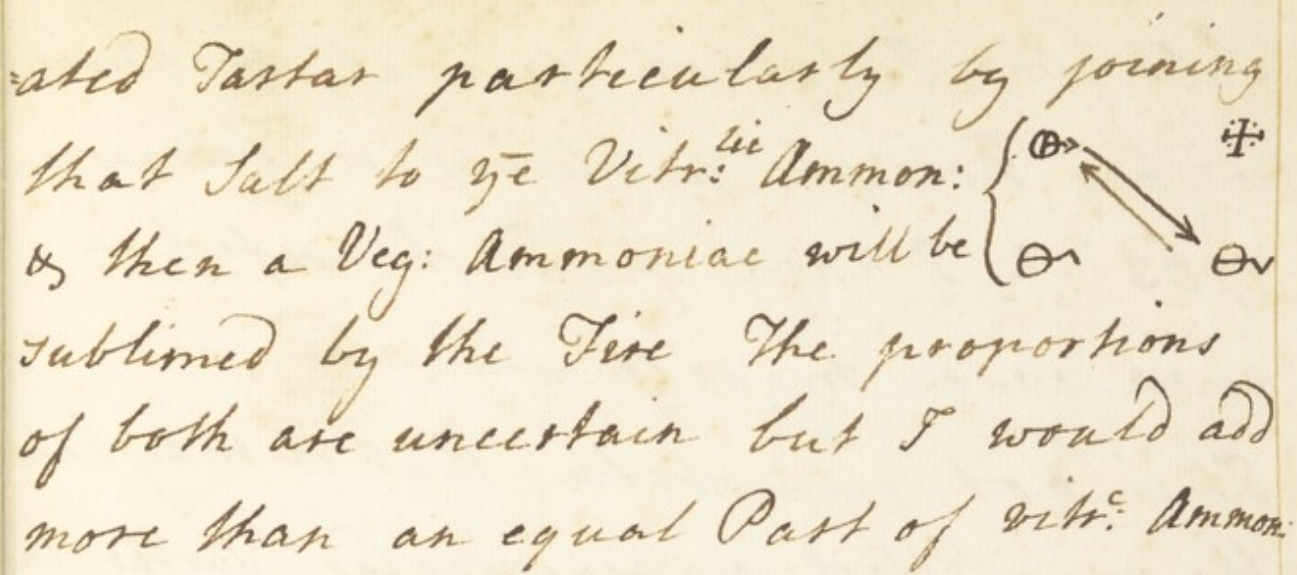 =ated Tartar particularly by joining
that Salt to ye Vitr:lic Ammon:
& then a Veg: Ammoniac will be
sublimed by the Fire The proportions
of both are uncertain but I would add
more than an equal Part of vitr:c Ammon: